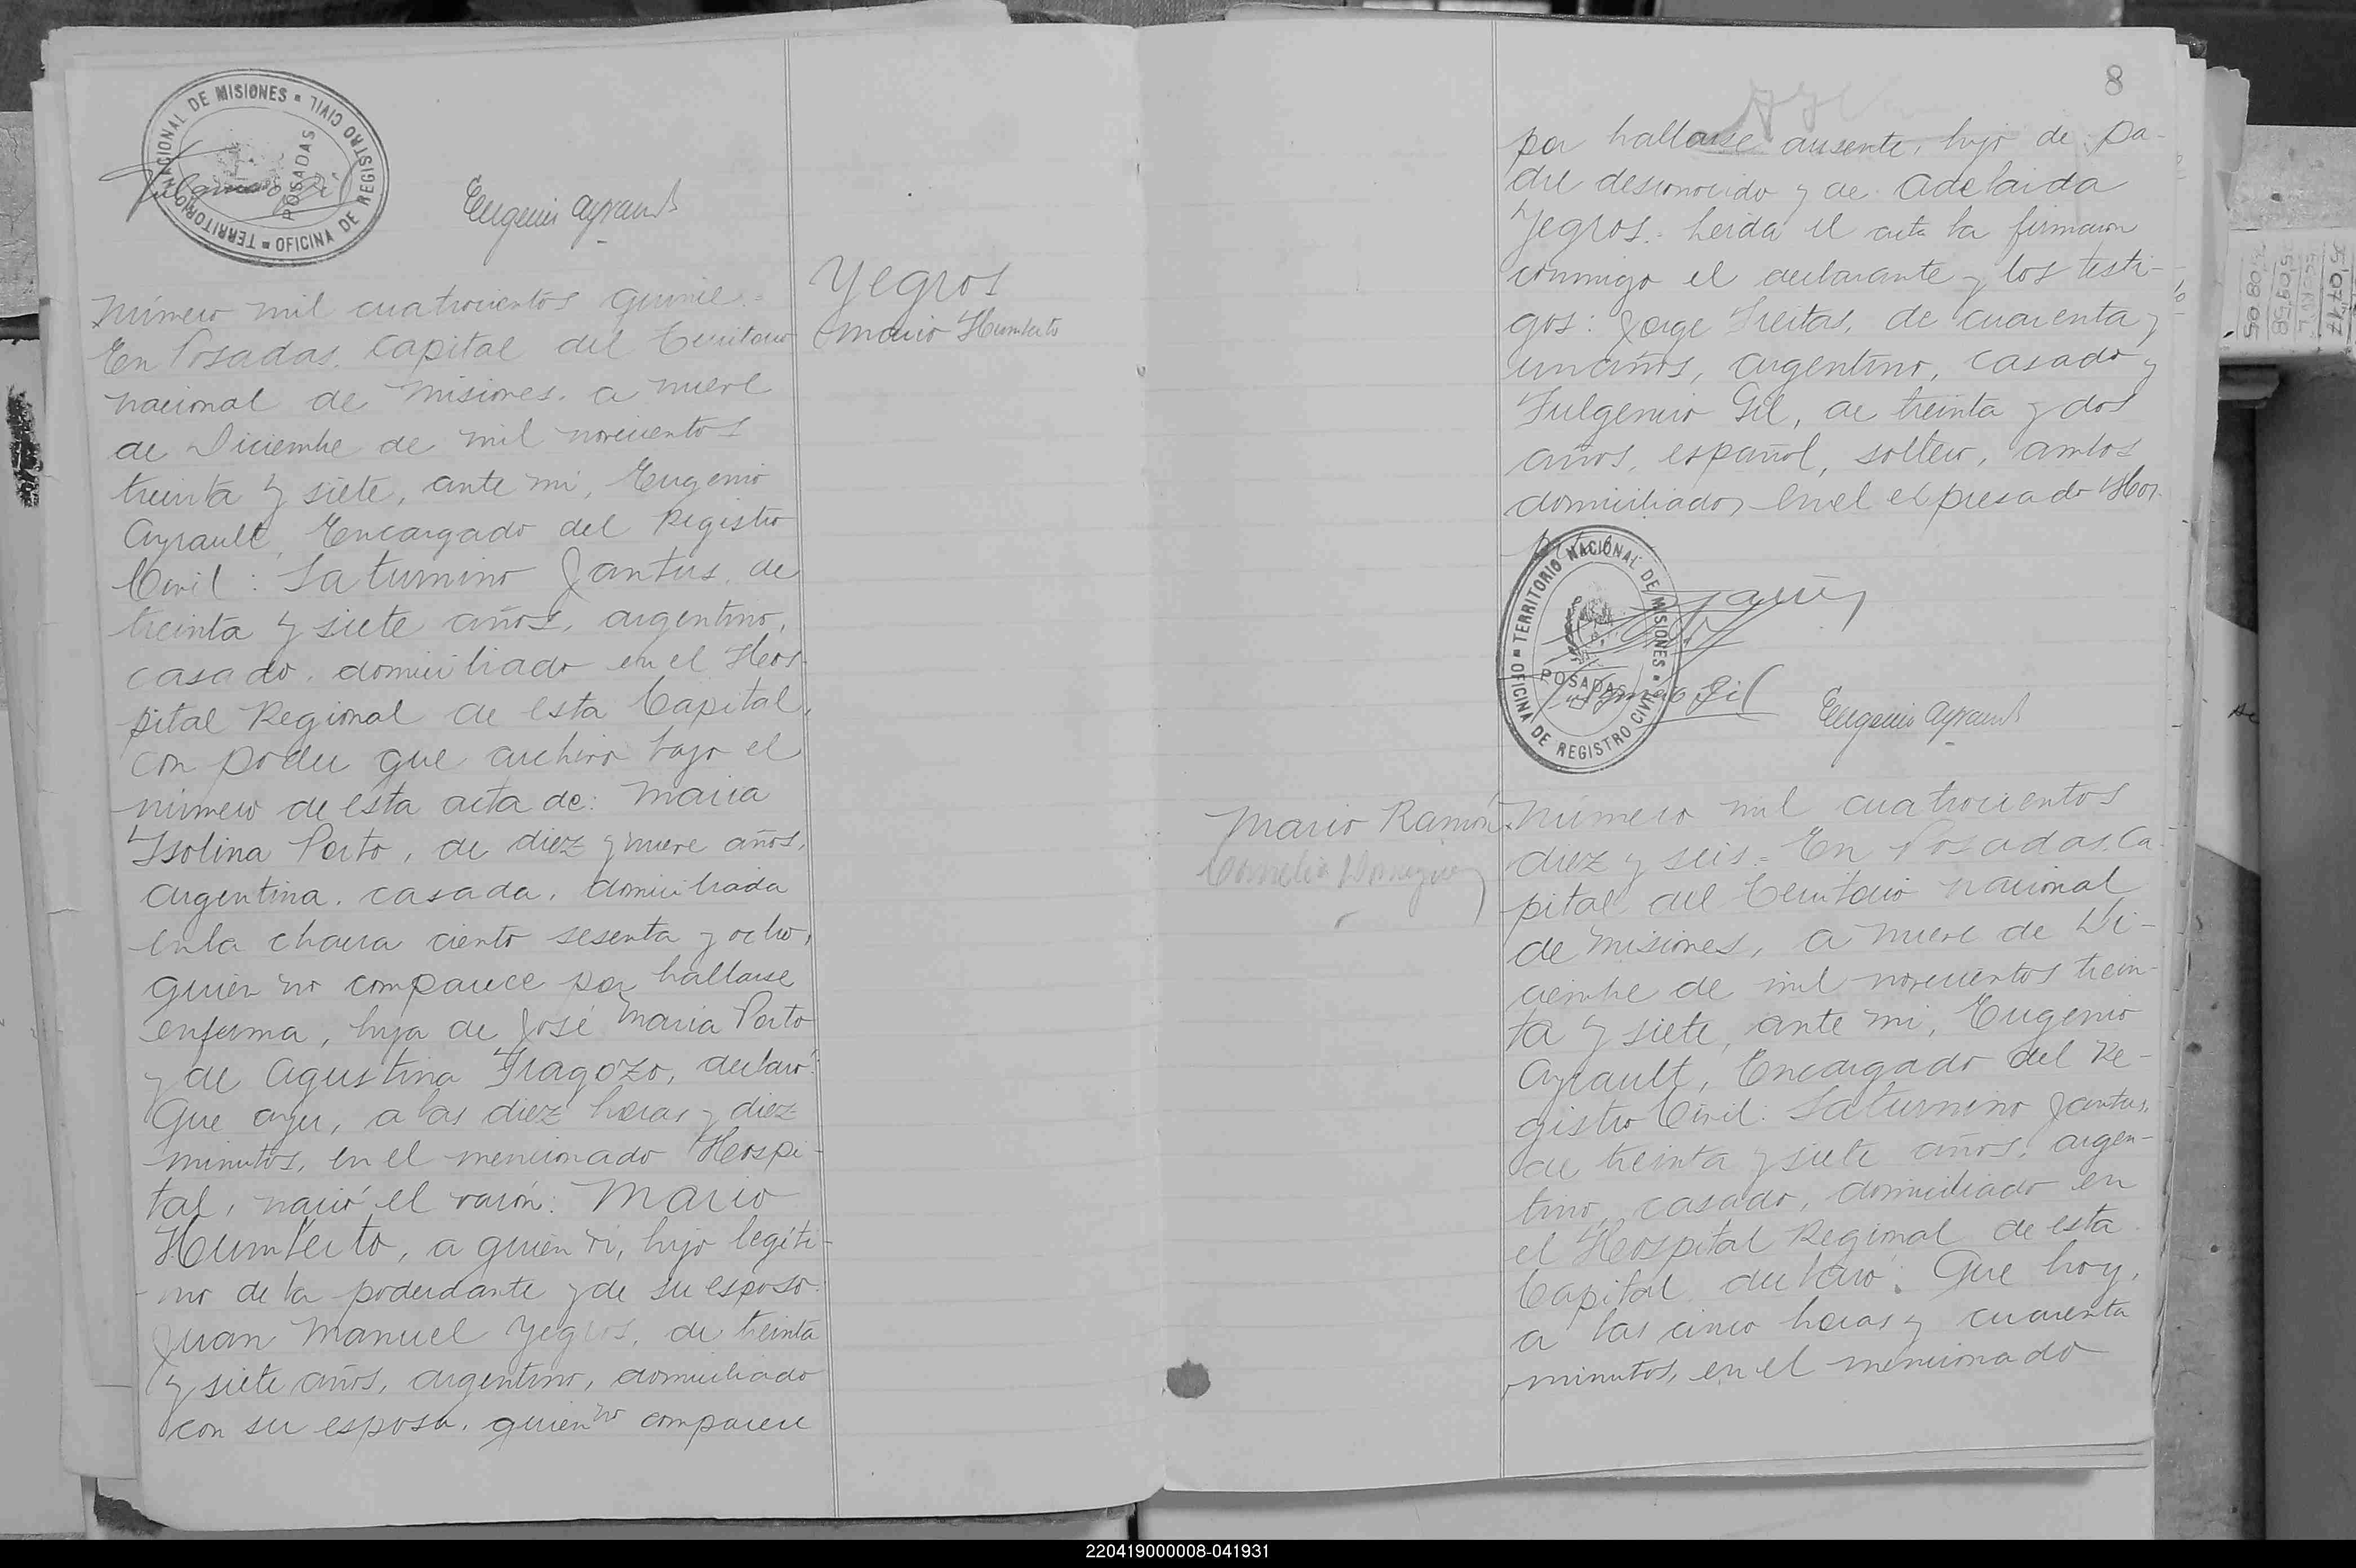 TERRITORIO NACIONAL DE MISIONES
OFICINA DE REGISTRO CIVIL
POSADAS
Fulgencio Gil
Eugenio Ayrault
Número mil cuatrocientos quince.=
En Posadas, Capital del Territorio
nacional de Misiones, a nueve
de Diciembre de mil novecientos
treinta y siete, ante mi, Eugenio
Ayrault, Encargado del Registro
Civil: Saturnino Jantus, de
treinta y siete años, argentino,
casado, domiciliado en el Hos-
pital Regional de esta Capital,
con poder que archivo bajo el
número de esta acta de: Maria
Isolina Porto, de diez y nueve años,
argentina, casada, domiciliada
en la chacra ciento sesenta y ocho,
quien no comparece por hallarse
enferma, hija de José Maria Porto
y de Agustina Fragozo, declaró:
Que ayer, a las diez horas y diez
minutos, en el mencionado Hospi-
tal, nació el varón: Mario
Humberto, a quien vi, hijo legíti-
mo de la poderdante y de su esposo:
Juan Manuel Yegros, de treinta
y siete años, argentino, domiciliado
con su esposa, quien no comparece
Yegros
Mario Humberto
8
por hallarse ausente, hijo de pa-
dre desconocido y de Adelaida
Yegros.- Leida el acta la firmaron
conmigo el declarante y los testi-
gos: Jorge Freitas, de cuarenta y
un años, argentino, casado y
Fulgencio Gil, de treinta y dos
años, español, soltero, ambos
domiciliados en el expresado Hos-
pital.
TERRITORIO NACIONAL DE MISIONES
OFICINA DE REGISTRO CIVIL
POSADAS
Fulgencio Gil
Eugenio Ayrault
Mario Ramón
Número mil cuatrocientos
diez y seis.= En Posadas, Ca-
pital del Territorio nacional
de Misiones, a nueve de Di-
ciembre de mil novecientos trein-
ta y siete, ante mi, Eugenio
Ayrault, Encargado del Re-
gistro Civil: Saturnino Jantus,
de treinta y siete años, argen-
tino, casado, domiciliado en
el Hospital Regional de esta
Capital, declaró: Que hoy,
a las cinco horas y cuarenta
minutos, en el mencionado
220419000008-041931